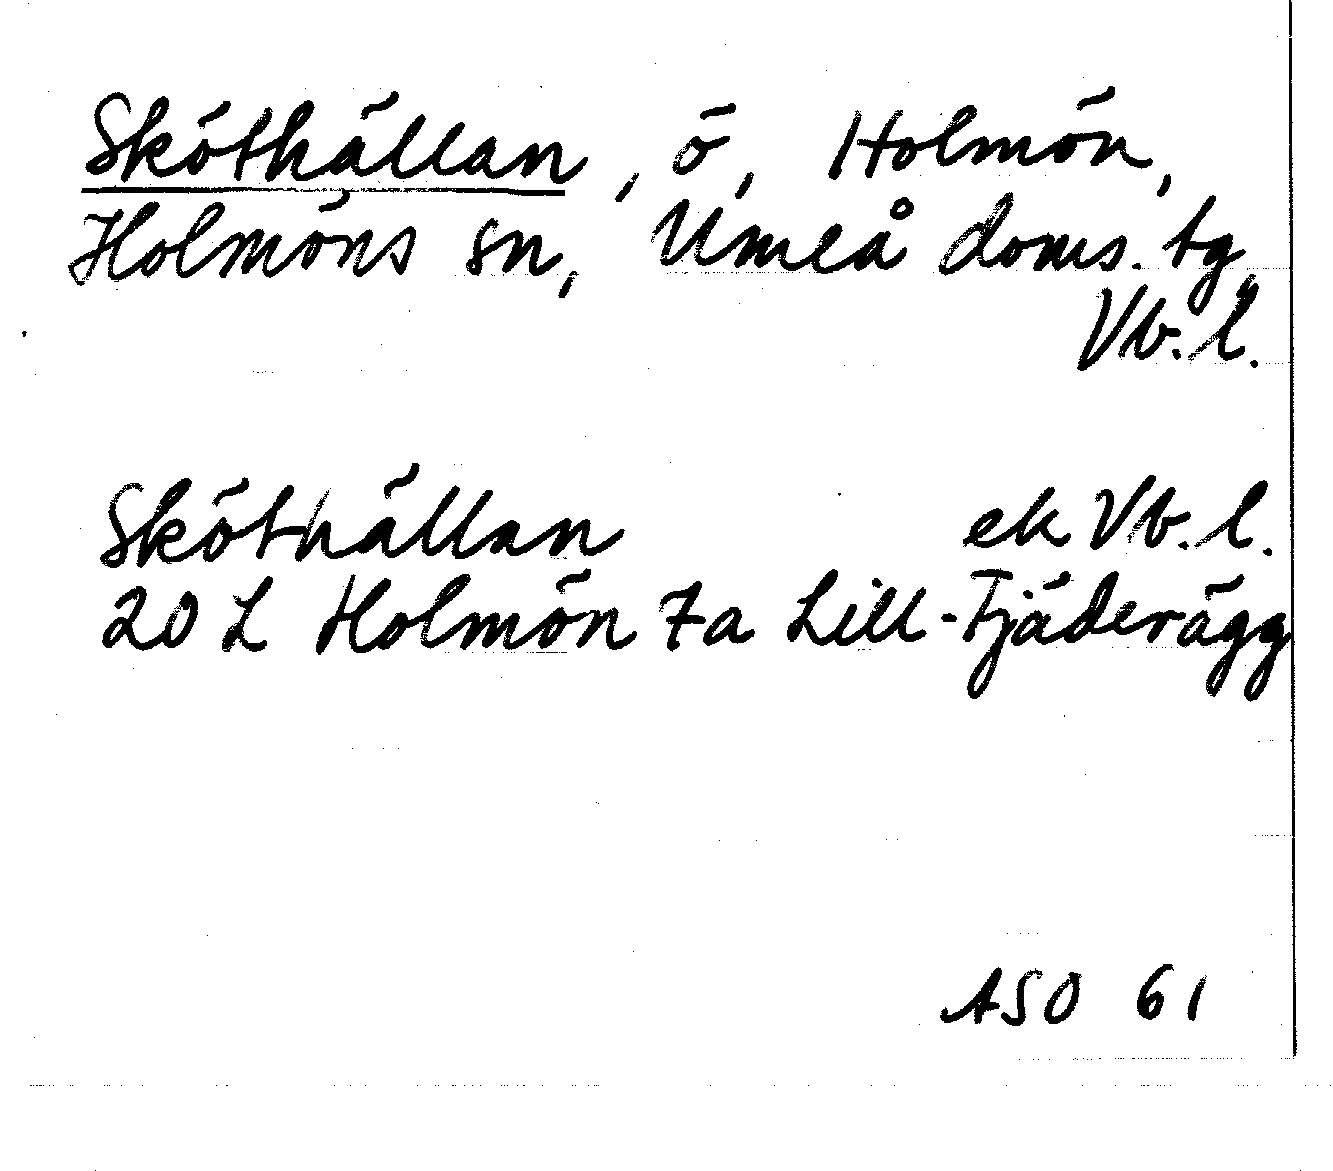 Sköthällan, ö, Holmön,
Holmöns sn, Umeå doms. tg,
Vb. l.
Sköthällan ek Vb. l.
20 L Holmön 7a Lill-Fjäderägg
ASO 61